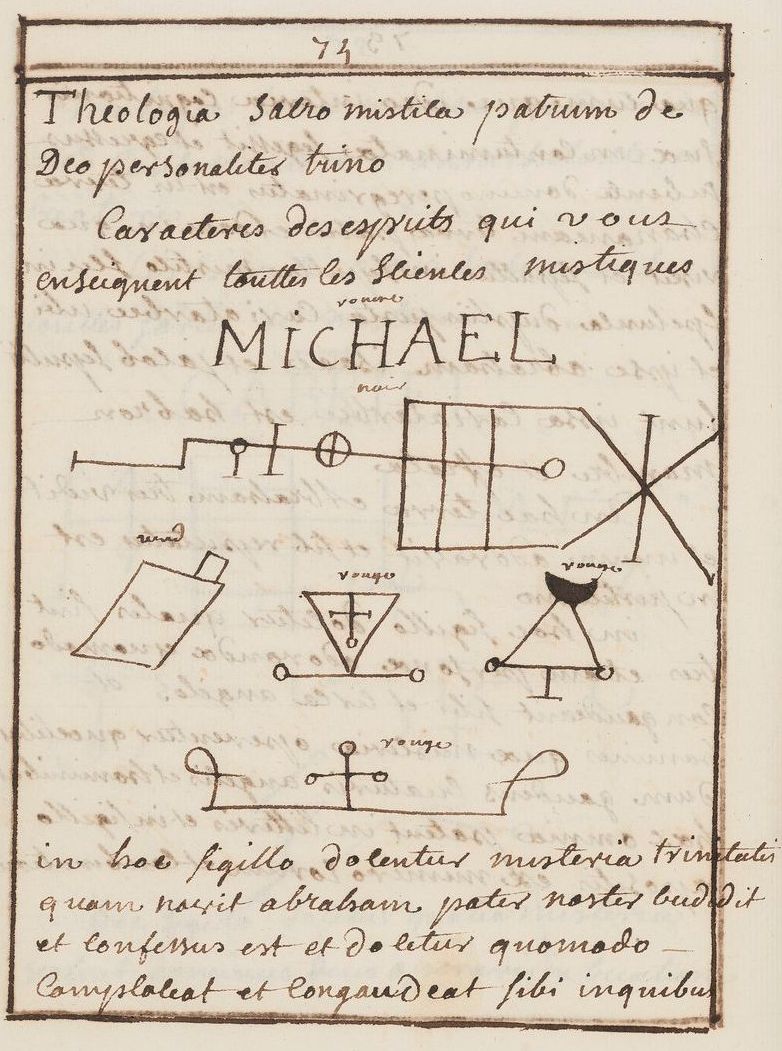 74
Theologia Sacro mistica patrum de
Deo personaliter trino
Caracteres des esprits qui vous
enseignent touttes les Sciences mistiques
rouge
MiCHAEL
noir
verd
rouge
rouge
rouge
in hoc sigillo docentur misteria trinitatis
quam novit abraham pater noster ludidit
et confessus est et docetur quomodo
complaceat et congaudeat sibi in quibus